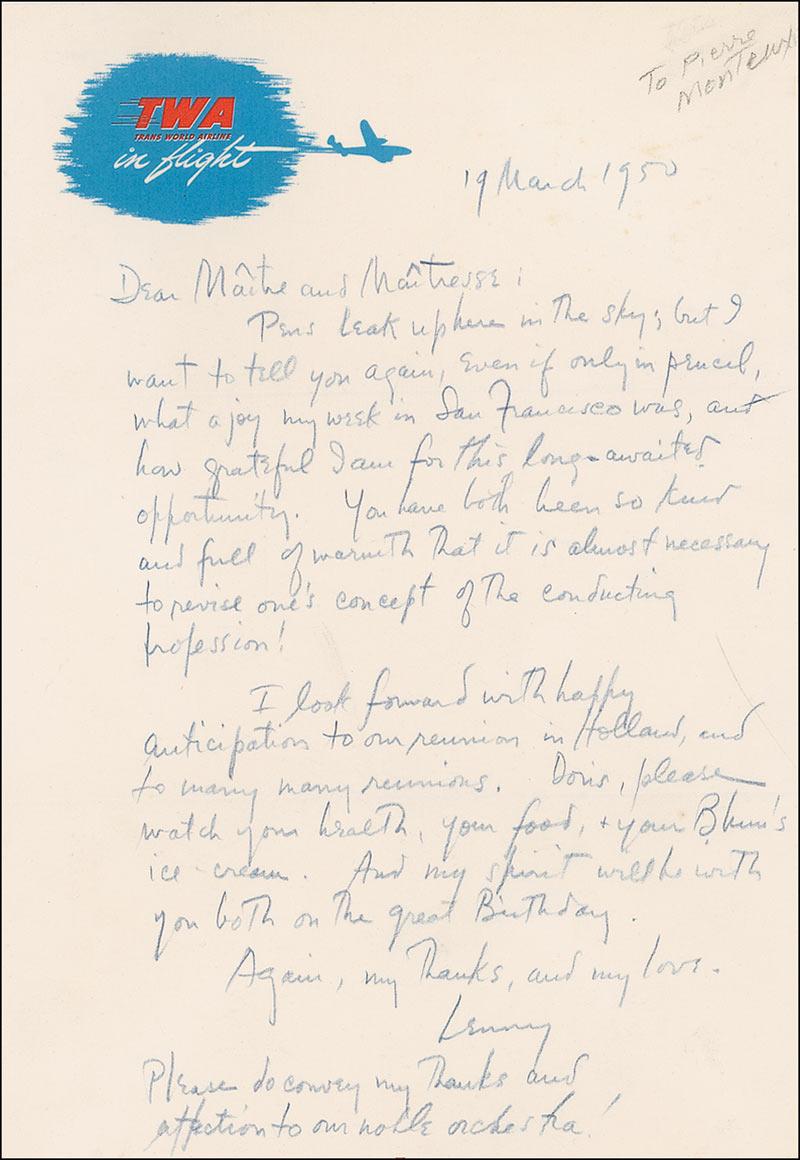 To Pierre
Monteux
TWA
TRANS WORLD AIRLINE
in flight
19 March 1950
Dear Maître and Maîtresse:
Pens leak up here in the sky; but I
want to tell you again, even if only in pencil,
what a joy my week in San Francisco was, and
how grateful I am for this long-awaited
opportunity. You have both been so kind
and full of warmth that it is almost necessary
to revise one's concept of the conducting
profession!
I look forward with happy
anticipation to our reunion in Holland, and
to many many reunions. Doris, please
watch your health, your food, + your Blum's
ice cream. And my spirit will be with
you both on the great Birthday.
Again, my thanks, and my love.
Lenny
Please do convey my thanks and
affection to our noble orchestra!